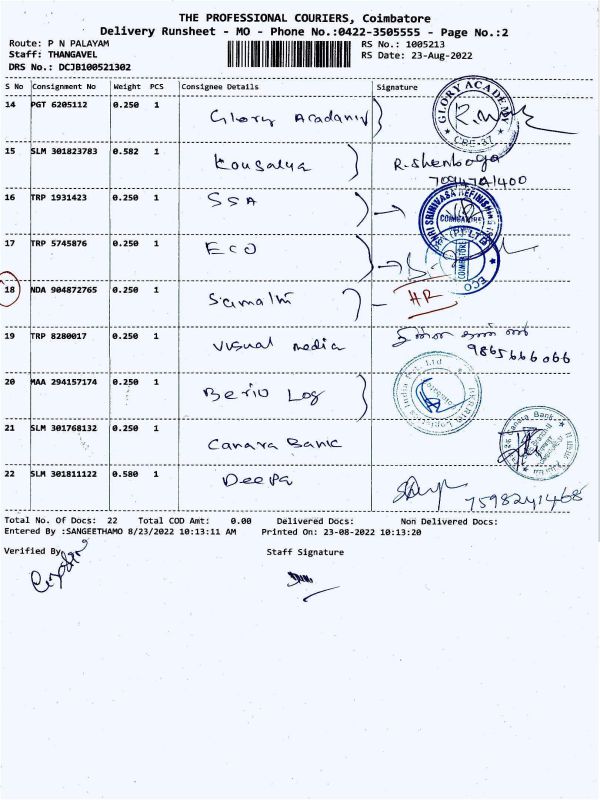 THE PROFESSIONAL COURIERS, Coimbatore
Delivery Runsheet - MO - Phone No.:0422-3505555 - Page No.:2
Route: P N PALAYAM RS No.: 1005213
Staff: THANGAVEL RS Date: 23-Aug-2022
DRS No.: DCJB100521302
S No Consignment No Weight PCS Consignee Details Signature
14 PGT 6205112 0.250 1 Glory GLORY ACADEMY CBE-37
15 SLM 301823783 0.582 1 Kousalya R. Shenbaga
7094701400
16 TRP 1931423 0.250 1 SSA SRINIVASA REFINISHING COIMBATORE (P) LTD
17 TRP 5745876 0.250 1 ECO COIMBATORE ECO
18 NDA 904872765 0.250 1 HR
19 TRP 8280017 0.250 1 Visual media
9865666066
20 MAA 294157174 0.250 1 Berio Log Logistics India Pvt. Ltd
21 SLM 301768132 0.250 1 Canara Bank Canara Bank
22 SLM 301811122 0.580 1 Deepa
7598241468
Total No. Of Docs: 22 Total COD Amt: 0.00 Delivered Docs: Non Delivered Docs:
Entered By :SANGEETHAMO 8/23/2022 10:13:11 AM Printed On: 23-08-2022 10:13:20
Verified By Staff Signature